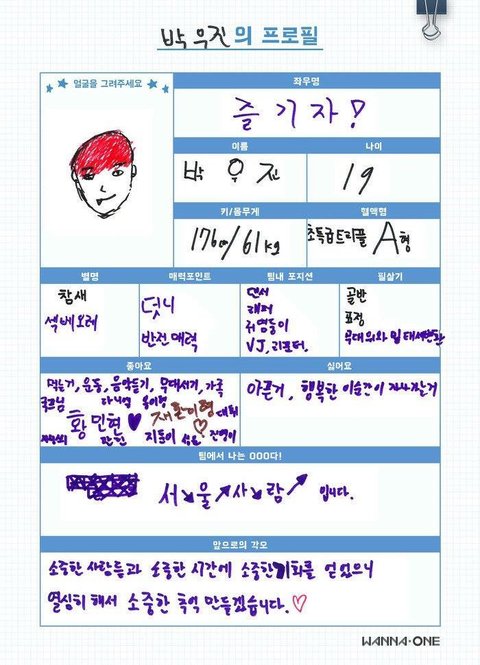 박우진의 프로필
얼굴을 그려주세요
좌우명
즐기자!
이름
나이
박우진
19
키/몸무게
혈액형
176cm/61kg
초특급트리플 A형
별명
매력포인트
팀내 포지션
필살기
참새
섹베오레
덧니
반전매력
댄서
래퍼
저염둥이
VJ, 리포터.
골반
표정
무대 위와 밑 태세변환
좋아요
싫어요
먹는거, 운동, 음악듣기, 무대서기, 가족
다니엘
황민현
재환이형
대휘
지훈이
성운
진영이
아픈거, 행복한 이순간이 지나가는거
팀에서 나는 OOO다!
서↘울↗사↘람↗ 입니다.
앞으로의 각오
소중한 사람들과 소중한 시간에 소중한기회를 얻었으니
열심히 해서 소중한 추억 만들겠습니다.♡
WANNA·ONE